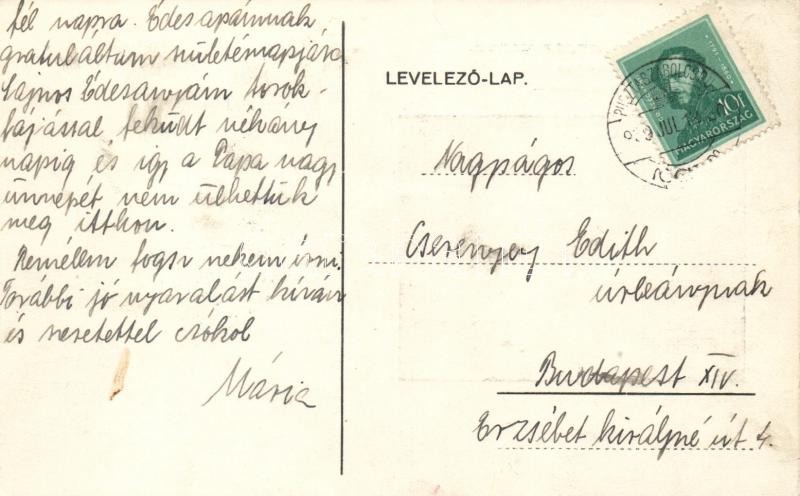 fél napra. Édesapámnak
gratuláltam születésnapjára
Sajnos Édesanyám torok-
fájással feküdt néhány
napig és így a Papa nagy
ünnepét nem ülhettük
meg itthon.
Remélem fogsz nekem írni.
További jó nyaralást kíván
és szeretettel csókol
Mária
LEVELEZŐ-LAP.
10f
MAGYARORSZÁG
PUSZTASZABOLCS
JUL
Nagyságos
Cserenyey Edith
úrleánynak
Budapest XIV.
Erzsébet királyné út 4.